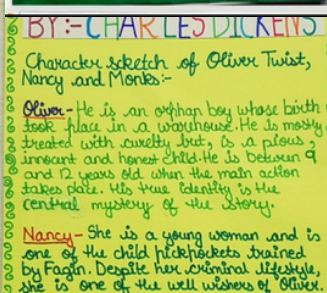 BY:- CHARLES DICKENS
Character scketch of Oliver Twist,
Nancy and Monks:-
Oliver - He is an orphan boy whose birth
took place in a warehouse. He is mostly
treated with cruelty but, is a pious,
innocent and honest child. He is between 9
and 12 years old when the main action
takes place. His true identity is the
central mystery of the story.
Nancy - She is a young woman and is
one of the child pickpockets trained
by Fagin. Despite her criminal lifestyle,
she is one of the well wishers of Oliver.